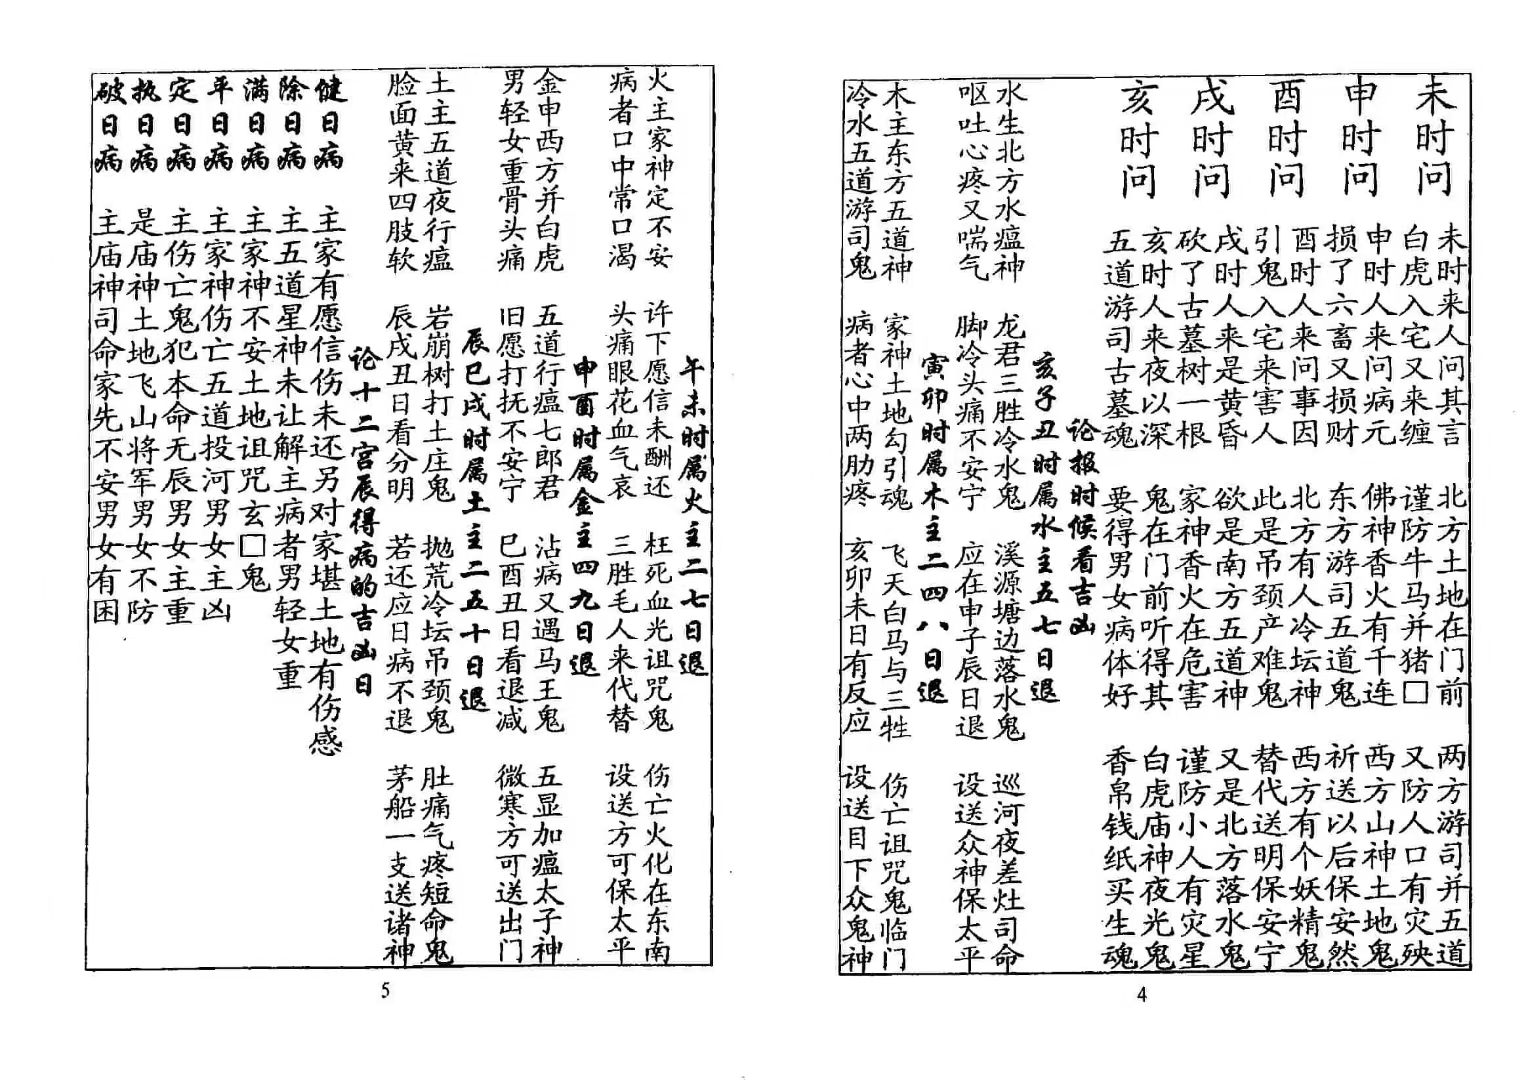 未时问
未时来人问其言 北方土地在门前 两方游司并五道
白虎入宅又来缠 谨防牛马并猪□ 又防人口有灾殃
申时问
申时人来问病元 佛神香火有千连 西方山神土地鬼
损了六畜又损财 东方游司五道鬼 祈送以后保安然
酉时问
酉时人来问事因 北方有人冷坛神 西方有个妖精鬼
引鬼入宅来害人 此是吊颈产难鬼 替代送明保安宁
戌时问
戌时人来是黄昏 欲是南方五道神 又是北方落水鬼
砍了古墓树一根 家神香火在危害 谨防小人有灾星
亥时问
亥时人来夜以深 鬼在门前听得其 白虎庙神夜光鬼
五道游司古墓魂 要得男女病体好 香帛钱纸买生魂
论报时候看吉凶
亥子丑时属水主五七日退
水生北方水瘟神 龙君三胜冷水鬼 溪源塘边落水鬼 巡河夜差灶司命
呕吐心疼又喘气 脚冷头痛不安宁 应在申子辰日退 设送众神保太平
寅卯时属木主二四八日退
木主东方五道神 家神土地勾引魂 飞天白马与三牲 伤亡诅咒鬼临门
冷水五道游司鬼 病者心中两肋疼 亥卯未日有反应 设送目下众鬼神
4
午未时属火主二七日退
火主家神定不安 许下愿信未酬还 枉死血光诅咒鬼 伤亡火化在东南
病者口中常口渴 头痛眼花血气哀 三胜毛人来代替 设送方可保太平
申酉时属金主四九日退
金申西方并白虎 五道行瘟七郎君 沾病又遇马王鬼 五显加瘟太子神
男轻女重骨头痛 旧愿打抚不安宁 巳酉丑日看退减 微寒方可送出门
辰巳戌时属土主二五十日退
土主五道夜行瘟 岩崩树打土庄鬼 抛荒冷坛吊颈鬼 肚痛气疼短命鬼
脸面黄来四肢软 辰戌丑日看分明 若还应日病不退 茅船一支送诸神
论十二宫辰得病的吉凶日
健日病 主家有愿信伤未还另对家堪土地有伤感
除日病 主五道星神未让解主病者男轻女重
满日病 主家神不安土地诅咒玄□鬼
平日病 主家神伤亡五道投河男女主凶
定日病 主伤亡鬼犯本命无辰男女主重
执日病 是庙神土地飞山将军男女不防
破日病 主庙神司命家先不安男女有困
5